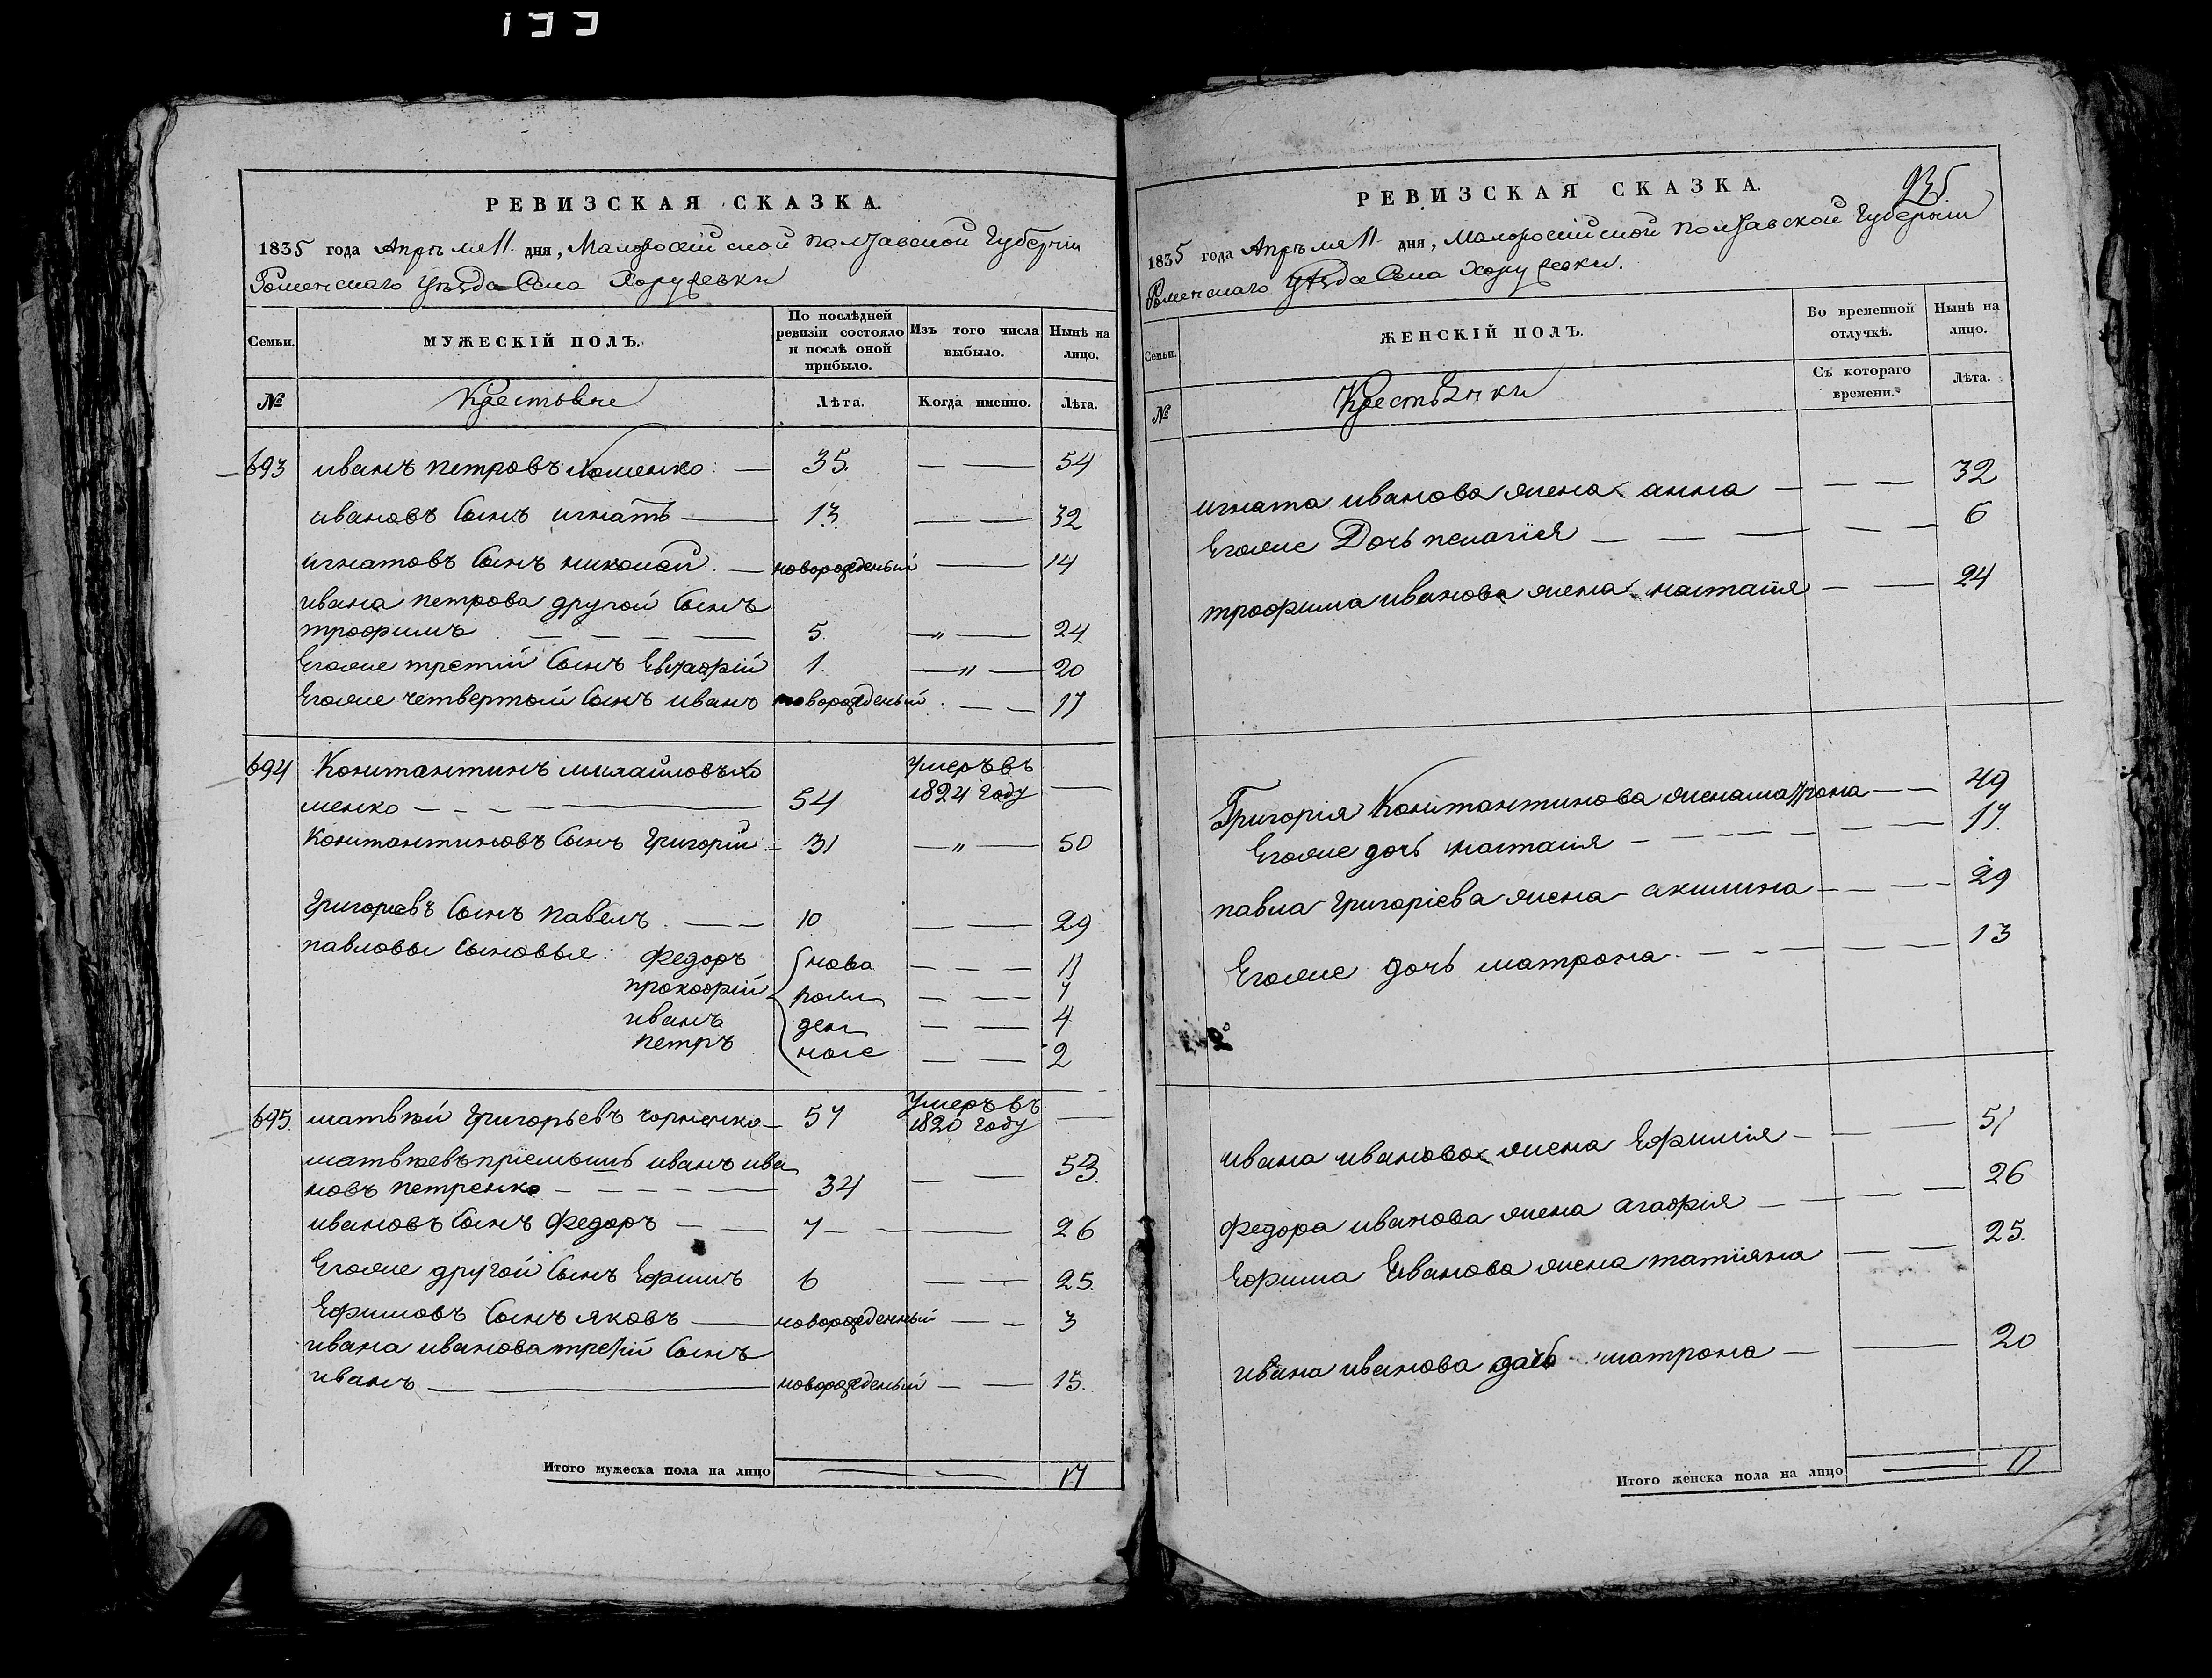 РЕВИЗСКАЯ СКАЗКА.
1835 года Апрѣля 11 дня, Малоросійской Полтавской Губерніи
Роменскаго Уѣзда Села Хоружевки
Семьи.
МУЖЕСКІЙ ПОЛЪ.
По послѣдней ревизіи состояло и послѣ оной прибыло.
Изъ того числа выбыло.
Нынѣ на лицо.
№
Крестьяне
Лѣта.
Когда именно.
Лѣта.
693 иванъ петровъ Хоменко 35. 54
ивановъ Сынъ игнатъ 13 32
игнатовъ Сынъ николай новорожденый 14
ивана петрова другой Сынъ
трофимъ 5. 24
Егоже третій Сынъ Евстафій 1. 20
Егоже четвертой Сынъ иванъ новорожденый 17
694 Константинъ михайловъ хо
менко 54 умеръ въ 1824 году
Константиновъ Сынъ Григорій 31 50
Григориевъ Сынъ павелъ 10 29
павловы Сыновья: Федоръ нова 11
прокофій рож 7
иванъ ден 4
петръ ное 2
695. матвѣй Григорьевъ чорненко 57 умеръ въ 1820 году
матвѣевъ пріемышъ иванъ ива
новъ петренко 34 53
ивановъ Сынъ Федоръ 7 26
Егоже другой Сынъ Ефимъ 6 25.
Ефимовъ Сынъ яковъ новорожденный 3
ивана иванова третій Сынъ
иванъ новорожденый 15.
Итого мужеска пола на лицо 17
935.
РЕВИЗСКАЯ СКАЗКА.
1835 года Апрѣля 11 дня, Малоросійской Полтавской Губерніи
Роменскаго Уѣзда Села Хоружевки.
Семьи.
ЖЕНСКІЙ ПОЛЪ.
Во временной отлучкѣ.
Нынѣ на лицо.
№
Крестьянки
Съ котораго времени.
Лѣта.
игната иванова жена анна 32
Егоже Дочь пелагiея 6
трофима иванова жена настасія 24
Григорія Константинова жена матрона 49
Егоже дочь настасія 17.
павла Григоріева жена акилина 29
Егоже дочь матрона 13
ивана иванова жена Ефимія 51
Федора иванова жена агафія 26
Ефима Иванова жена татіяна 25.
ивана иванова дочь матрона 20
Итого женска пола на лицо 11